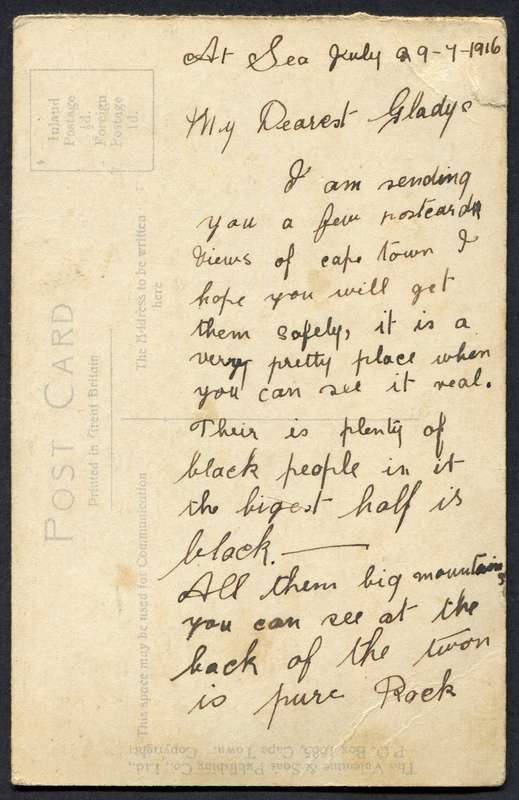 At Sea July 29-7-1916
My Dearest Gladys
I am sending
you a few postcards
Views of cape town I
hope you will get
them safely, it is a
very pretty place when
you can see it real.
Their is plenty of
black people in it
the bigest half is
black. —
All them big mountains
you can see at the
back of the twon
is pure Rock
Inland
Postage
½d.
Foreign
Postage
1d.
POST CARD
Printed in Great Britain
The Address to be written
here
This space may be used for Communication
The Valentine & Sons Publishing Co. Ltd.,
P.O. Box 1685, Cape Town. Copyright